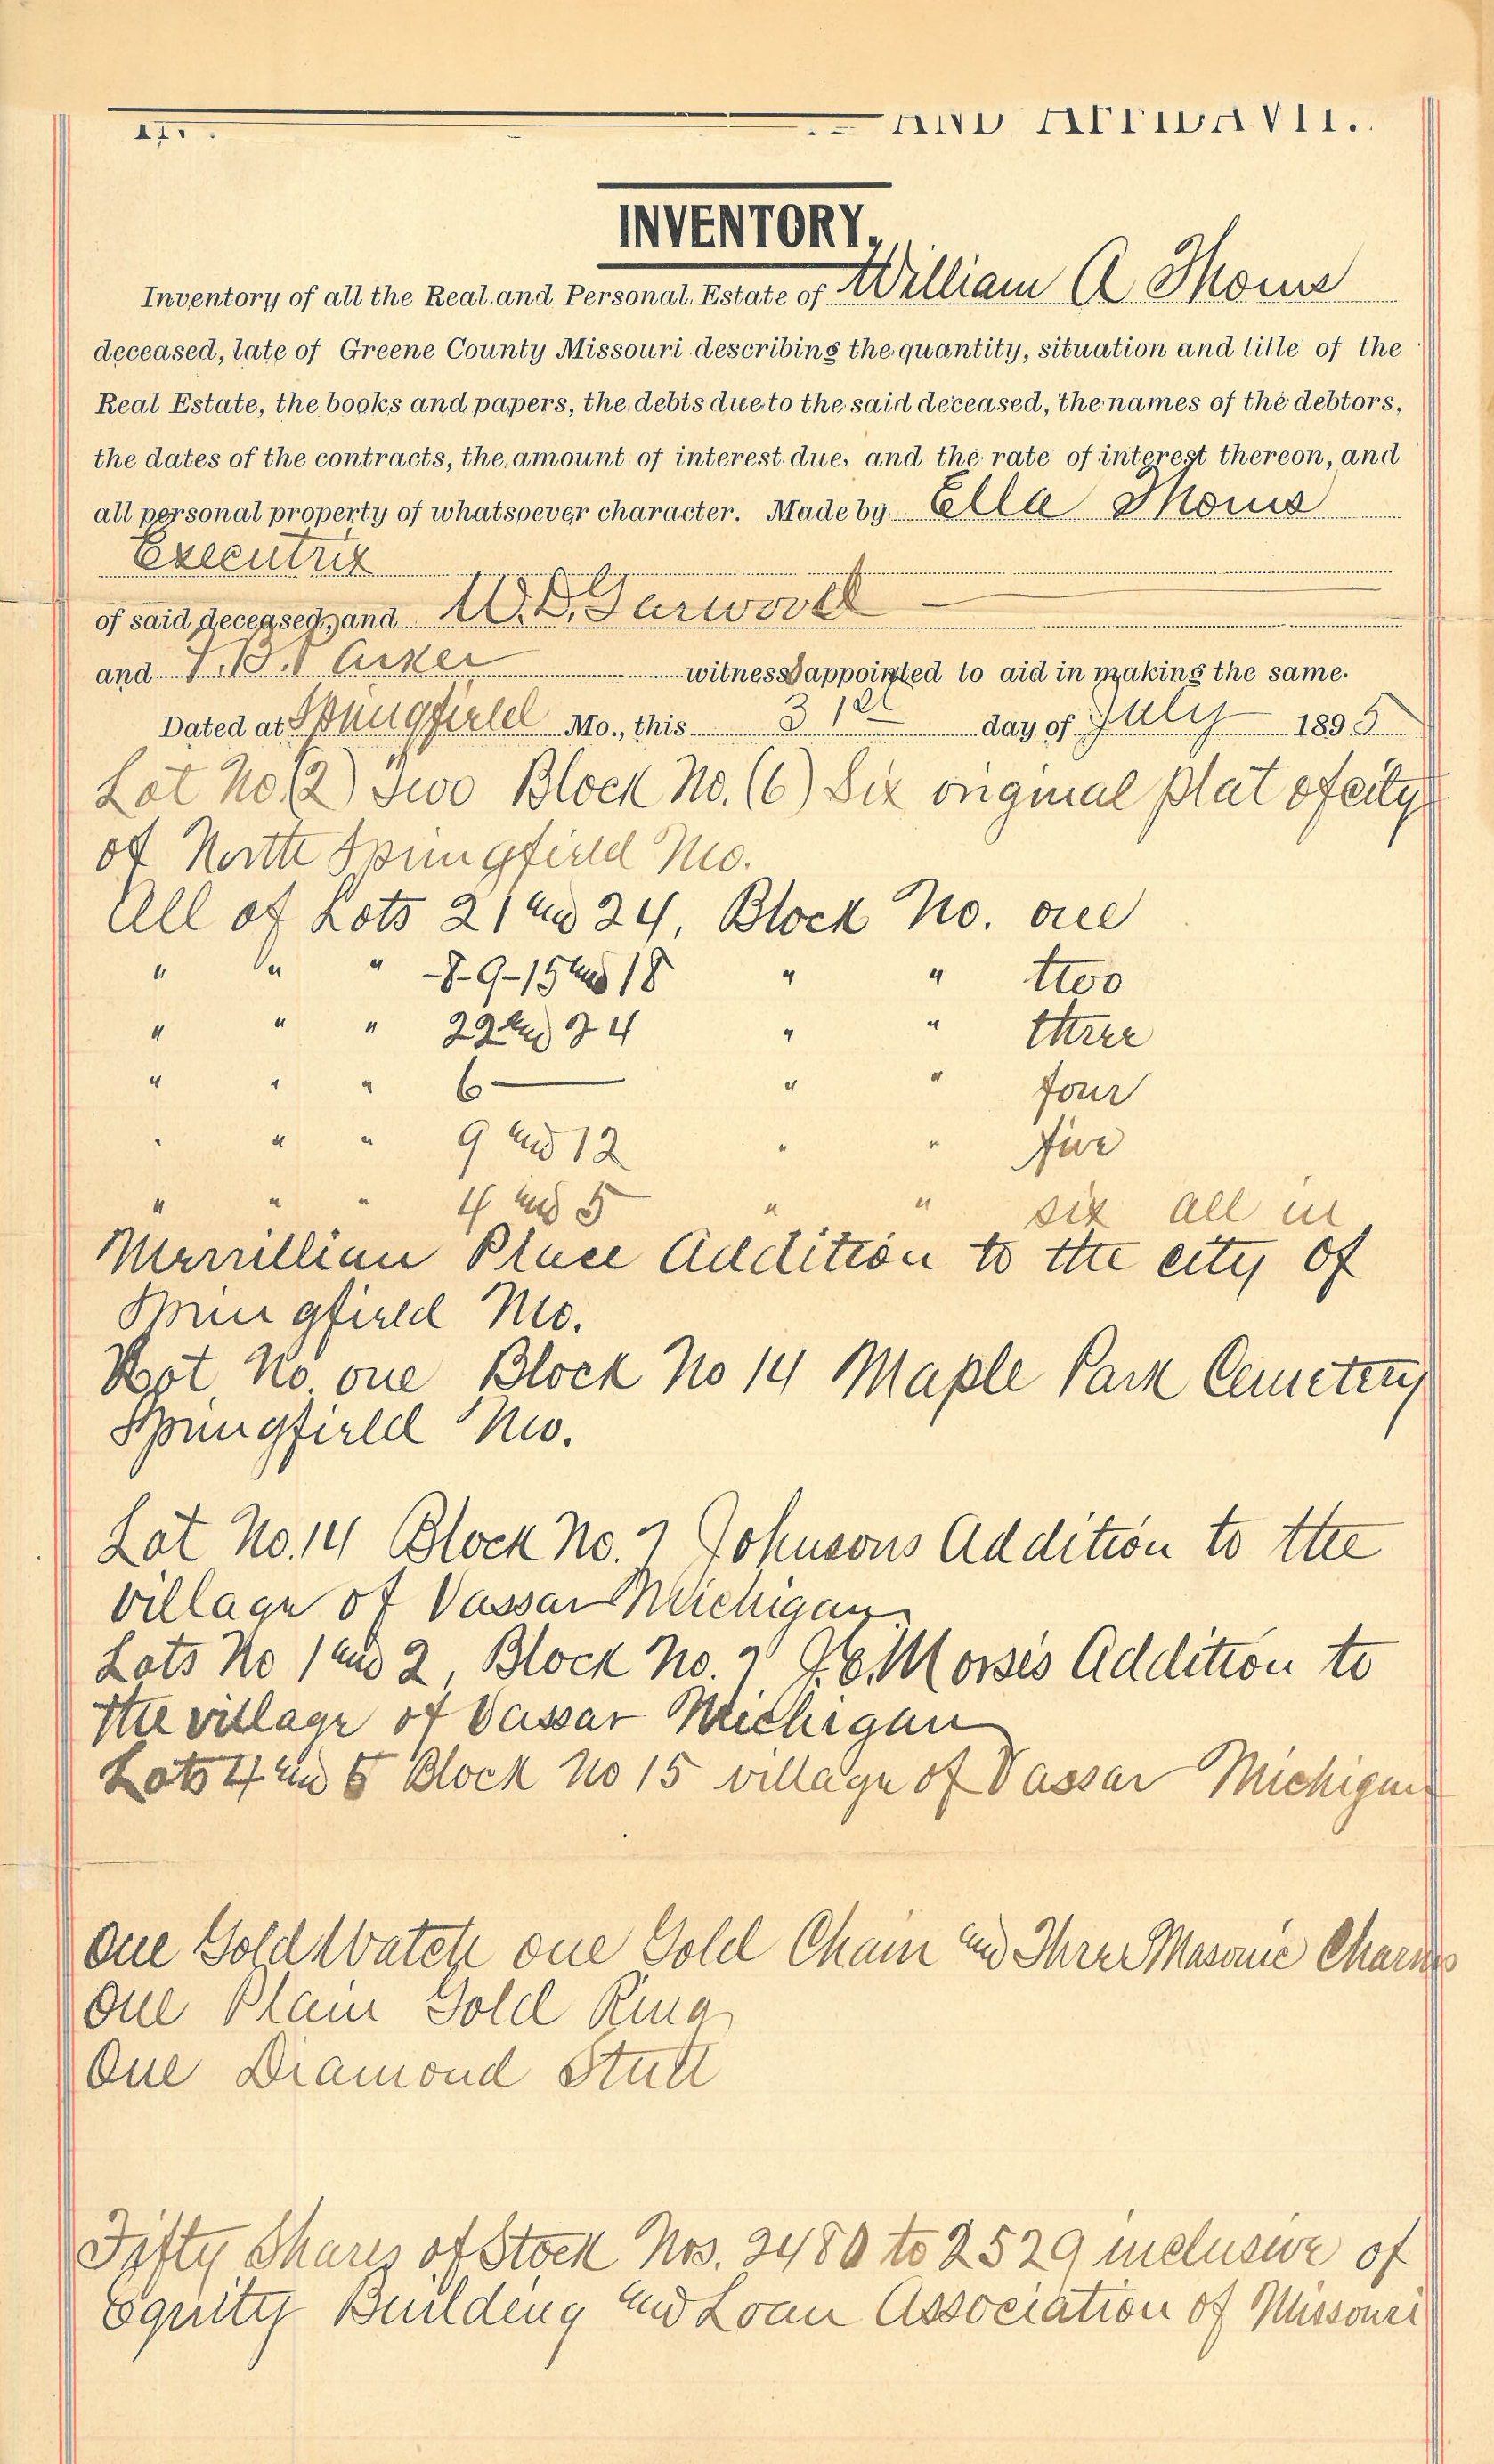 AND AFFIDAVIT.
INVENTORY.
Inventory of all the Real and Personal Estate of William A Thoms
deceased, late of Greene County Missouri describing the quantity, situation and title of the
Real Estate, the books and papers, the debts due to the said deceased, the names of the debtors,
the dates of the contracts, the amount of interest due, and the rate of interest thereon, and
all personal property of whatsoever character. Made by Ella Thoms
Executrix
of said deceased, and W. D. Garwood
and T. B. Parker witness appointed to aid in making the same.
Dated at Springfield Mo., this 31st day of July 1895
Lot No. (2) Two Block No. (6) Six original plat of city
of North Springfield Mo.
All of Lots 21 and 24, Block No. one
" " " -8-9-15 and 18 " " two
" " " 22 and 24 " " three
" " " 6 — " " four
" " " 9 and 12 " " five
" " " 4 and 5 " " six all in
Merrillian Place Addition to the city of
Springfield Mo.
Lot No. one Block No 14 Maple Park Cemetery
Springfield Mo.
Lot No. 14 Block No. 7 Johnsons Addition to the
village of Vassar Michigan
Lots No 1 and 2, Block No. 7 Morses Addition to
the village of Vassar Michigan
Lots 4 and 5 Block No 15 village of Vassar Michigan
One Gold Watch one Gold Chain and Three Masonic Charms
One Plain Gold Ring
One Diamond Stud
Fifty Shares of Stock Nos. 2480 to 2529 inclusive of
Equity Building and Loan Association of Missouri